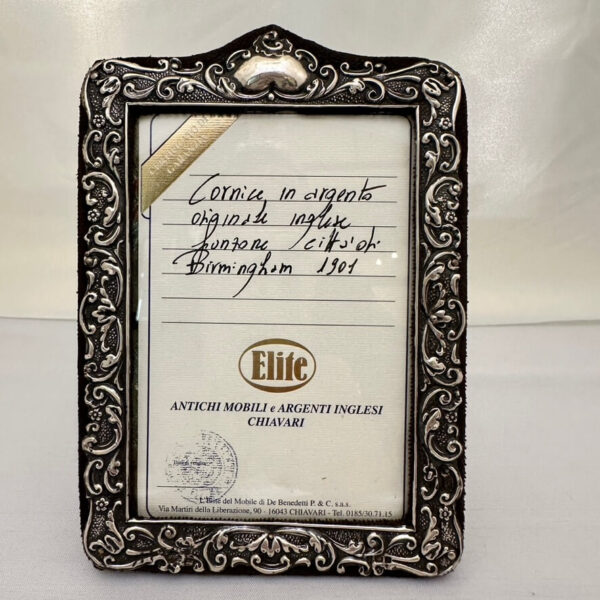 Cornice in argento
originale inglese
punzone città di
Birmingham 1901
Elite
ANTICHI MOBILI e ARGENTI INGLESI
CHIAVARI
L'Elite del Mobile di De Benedetti P. & C. s.a.s.
Via Martiri della Liberazione, 90 - 16043 CHIAVARI - Tel. 0185/30.71.15